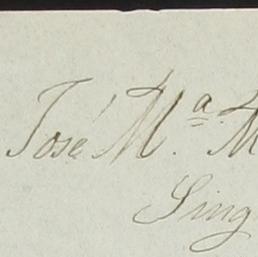 José M.ª M
Sing